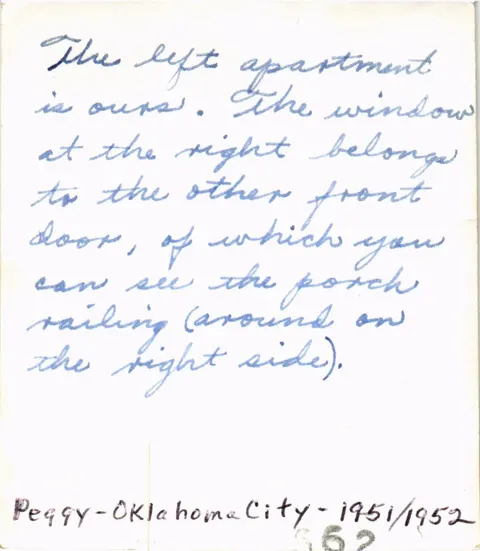 The left apartment
is ours. The window
at the right belongs
to the other front
door, of which you
can see the porch
railing (around on
the right side).
Peggy-Oklahoma City - 1951/1952
62